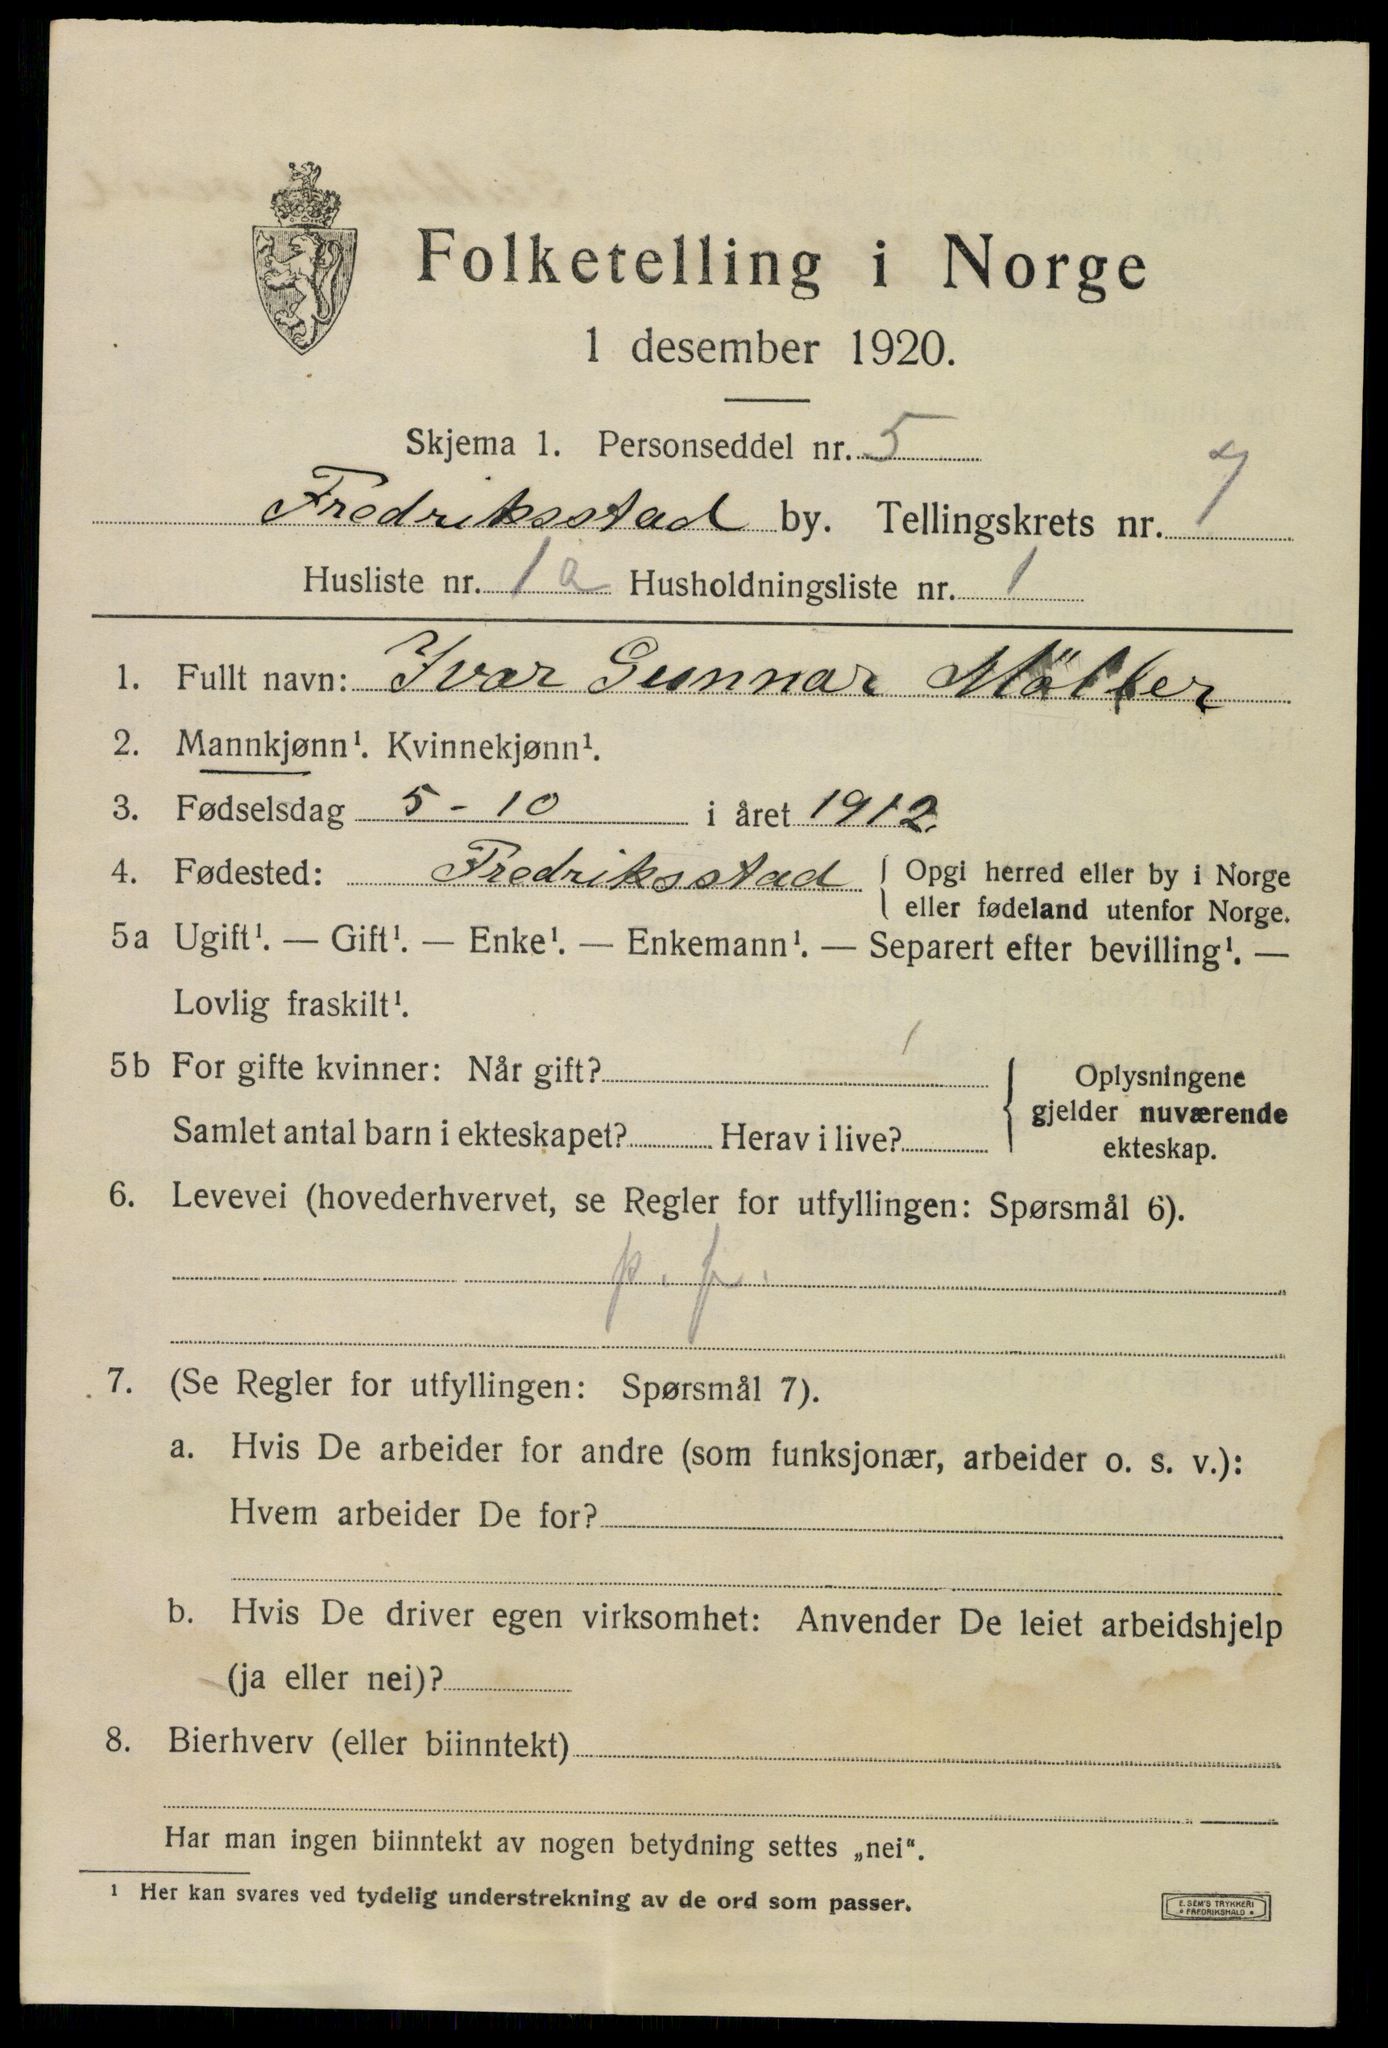 Folketelling i Norge
1 desember 1920.
Skjema 1. Personseddel nr. 5
Fredriksstad by. Tellingskrets nr. 7
Husliste nr. 1a Husholdningsliste nr. 1
1. Fullt navn: Ivar Gunnar Möller
2. Mannkjønn¹. Kvinnekjønn¹.
3. Fødselsdag 5-10 i året 1912.
4. Fødested: Fredriksstad { Opgi herred eller by i Norge
eller fødeland utenfor Norge.
5a Ugift¹. — Gift¹. — Enke¹. — Enkemann¹. — Separert efter bevilling¹. —
Lovlig fraskilt¹.
5b For gifte kvinner: Når gift?
Samlet antal barn i ekteskapet? Herav i live?
Oplysningene
gjelder nuværende
ekteskap.
6. Levevei (hovederhvervet, se Regler for utfyllingen: Spørsmål 6).
p. f.
7. (Se Regler for utfyllingen: Spørsmål 7).
a. Hvis De arbeider for andre (som funksjonær, arbeider o. s. v.):
Hvem arbeider De for?
b. Hvis De driver egen virksomhet: Anvender De leiet arbeidshjelp
(ja eller nei)?
8. Bierhverv (eller biinntekt)
Har man ingen biinntekt av nogen betydning settes „nei".
¹ Her kan svares ved tydelig understrekning av de ord som passer.
E. SEM'S TRYKKERI
FREDRIKSHALD